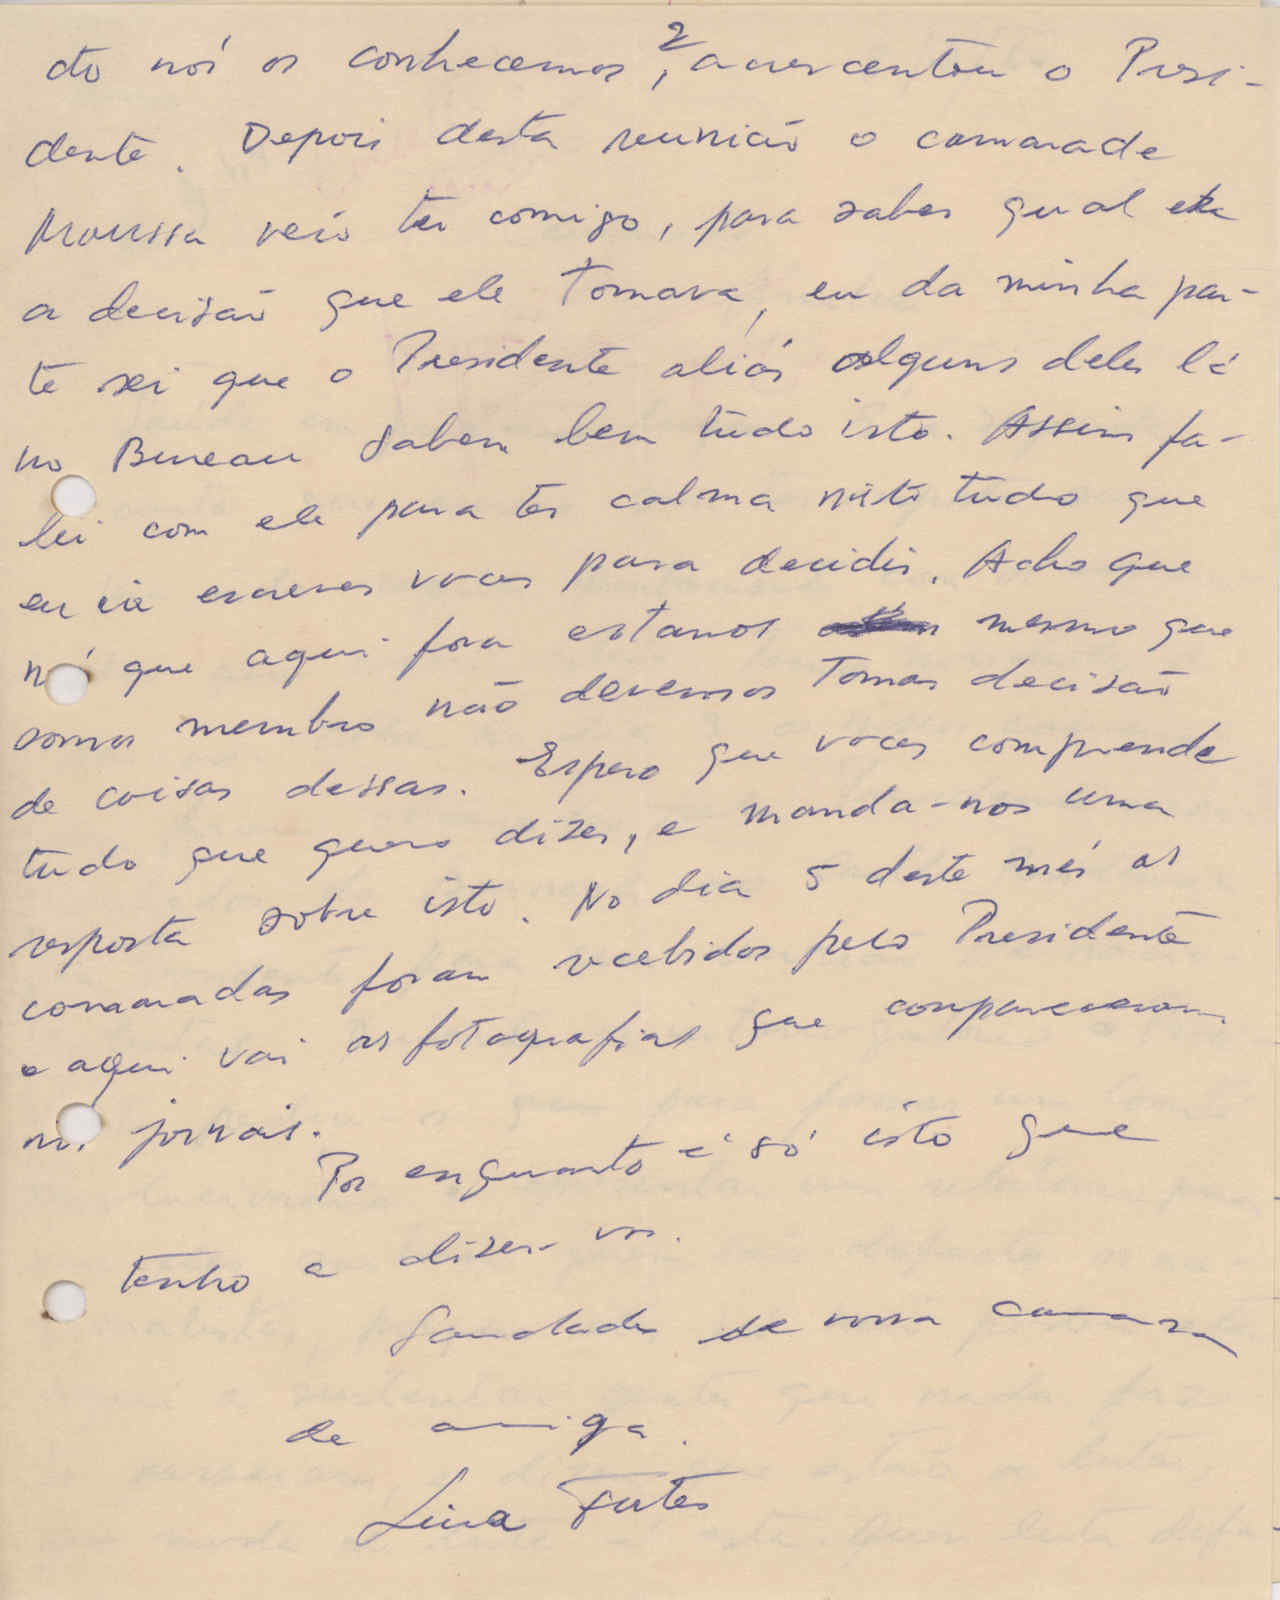 2
do nós os conhecemos, acrescentou o Presi-
dente. Depois desta reunião o camarade
Moussa veio ter comigo, para saber qual era
a decisão que ele tomava, eu da minha par-
te sei que o Presidente aliás alguns deles lá
no Bureau sabem bem tudo isto. Assim fa-
lei com ele para ter calma nisto tudo que
eu ia escrever voces para decidir. Acho que
nós que aqui fora estamos mesmo que
somos membro não devemos tomar decisão
de coisas dessas. Espero que voces comprende
tudo que quero dizer, e manda-nos uma
resposta sobre isto. No dia 5 deste mês os
camaradas foram recebidos pelo Presidente
e aqui vai as fotografias que compareceram
nos jornais.
Por enquanto é só isto que
tenho a dizer-vos.
Saudades de vossa camara
de amiga.
Lina Fortes